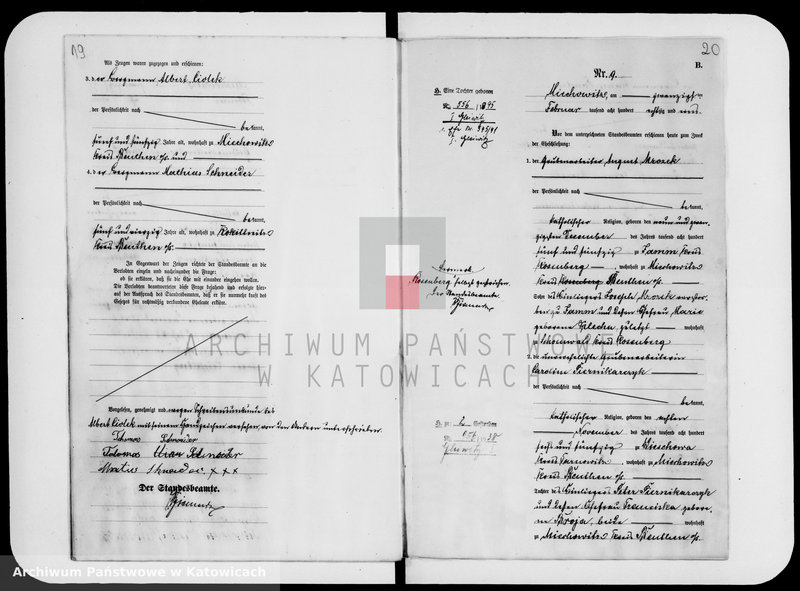 19
Als Zeugen waren zugezogen und erschienen:
3. der Bergmann Albert Ciolek
der Persönlichkeit nach
bekannt,
fünf und fünfzig Jahre alt, wohnhaft zu Miechowitz
Kreis Beuthen O/S. und
4. der Bergmann Mathias Schneider
der Persönlichkeit nach
bekannt,
fünf und vierzig Jahre alt, wohnhaft zu Rokittnitz
Kreis Beuthen O/S.
In Gegenwart der Zeugen richtete der Standesbeamte an die
Verlobten einzeln und nacheinander die Frage:
ob sie erklären, daß sie die Ehe mit einander eingehen wollen.
Die Verlobten beantworteten diese Frage bejahend und erfolgte hier-
auf der Ausspruch des Standesbeamten, daß er sie nunmehr kraft des
Gesetzes für rechtmäßig verbundene Eheleute erkläre.
Vorgelesen, genehmigt und wegen Schreibensunkunde des
Albert Ciolek mit seinem Handzeichen versehen, von den Anderen unterschrieben.
Schneider
+++
Der Standesbeamte.
20
B.
Nr. 9.
Miechowitz, am zwanzigsten
Februar tausend acht hundert achtzig und
Vor dem unterzeichneten Standesbeamten erschienen heute zum Zweck
der Eheschließung:
1. der Grubenarbeiter August Mrozek
der Persönlichkeit nach
bekannt,
katholischer Religion, geboren den neun und zwan-
zigsten December des Jahres tausend acht hundert
fünf und fünfzig zu Kreis
Rosenberg, wohnhaft zu Miechowitz
Kreis Rosenberg Beuthen O/S.
Sohn des Einliegers Mrozek verstor-
ben zu und dessen Ehefrau Marie
geborene zuletzt wohnhaft
zu Schoenwald Kreis Rosenberg
2. die unverehelichte Grubenarbeiterin
Caroline Piernikarczyk
der Persönlichkeit nach
bekannt,
katholischer Religion, geboren den achten
November des Jahres tausend acht hundert
sechs und fünfzig zu Wieschowa
Kreis Tarnowitz, wohnhaft zu Miechowitz
Kreis Beuthen O/S.
Tochter des Einliegers Peter Piernikarczyk
und dessen Ehefrau Franciska gebore-
ne Broja, beide wohnhaft
zu Miechowitz Kreis Beuthen O/S.
Eine Tochter geboren
No. 556
Gleiwitz
Rosenberg
Der Standesbeamte
Geborben
ARCHIWUM PAŃSTWOWE
W KATOWICACH
Archiwum Państwowe w Katowicach